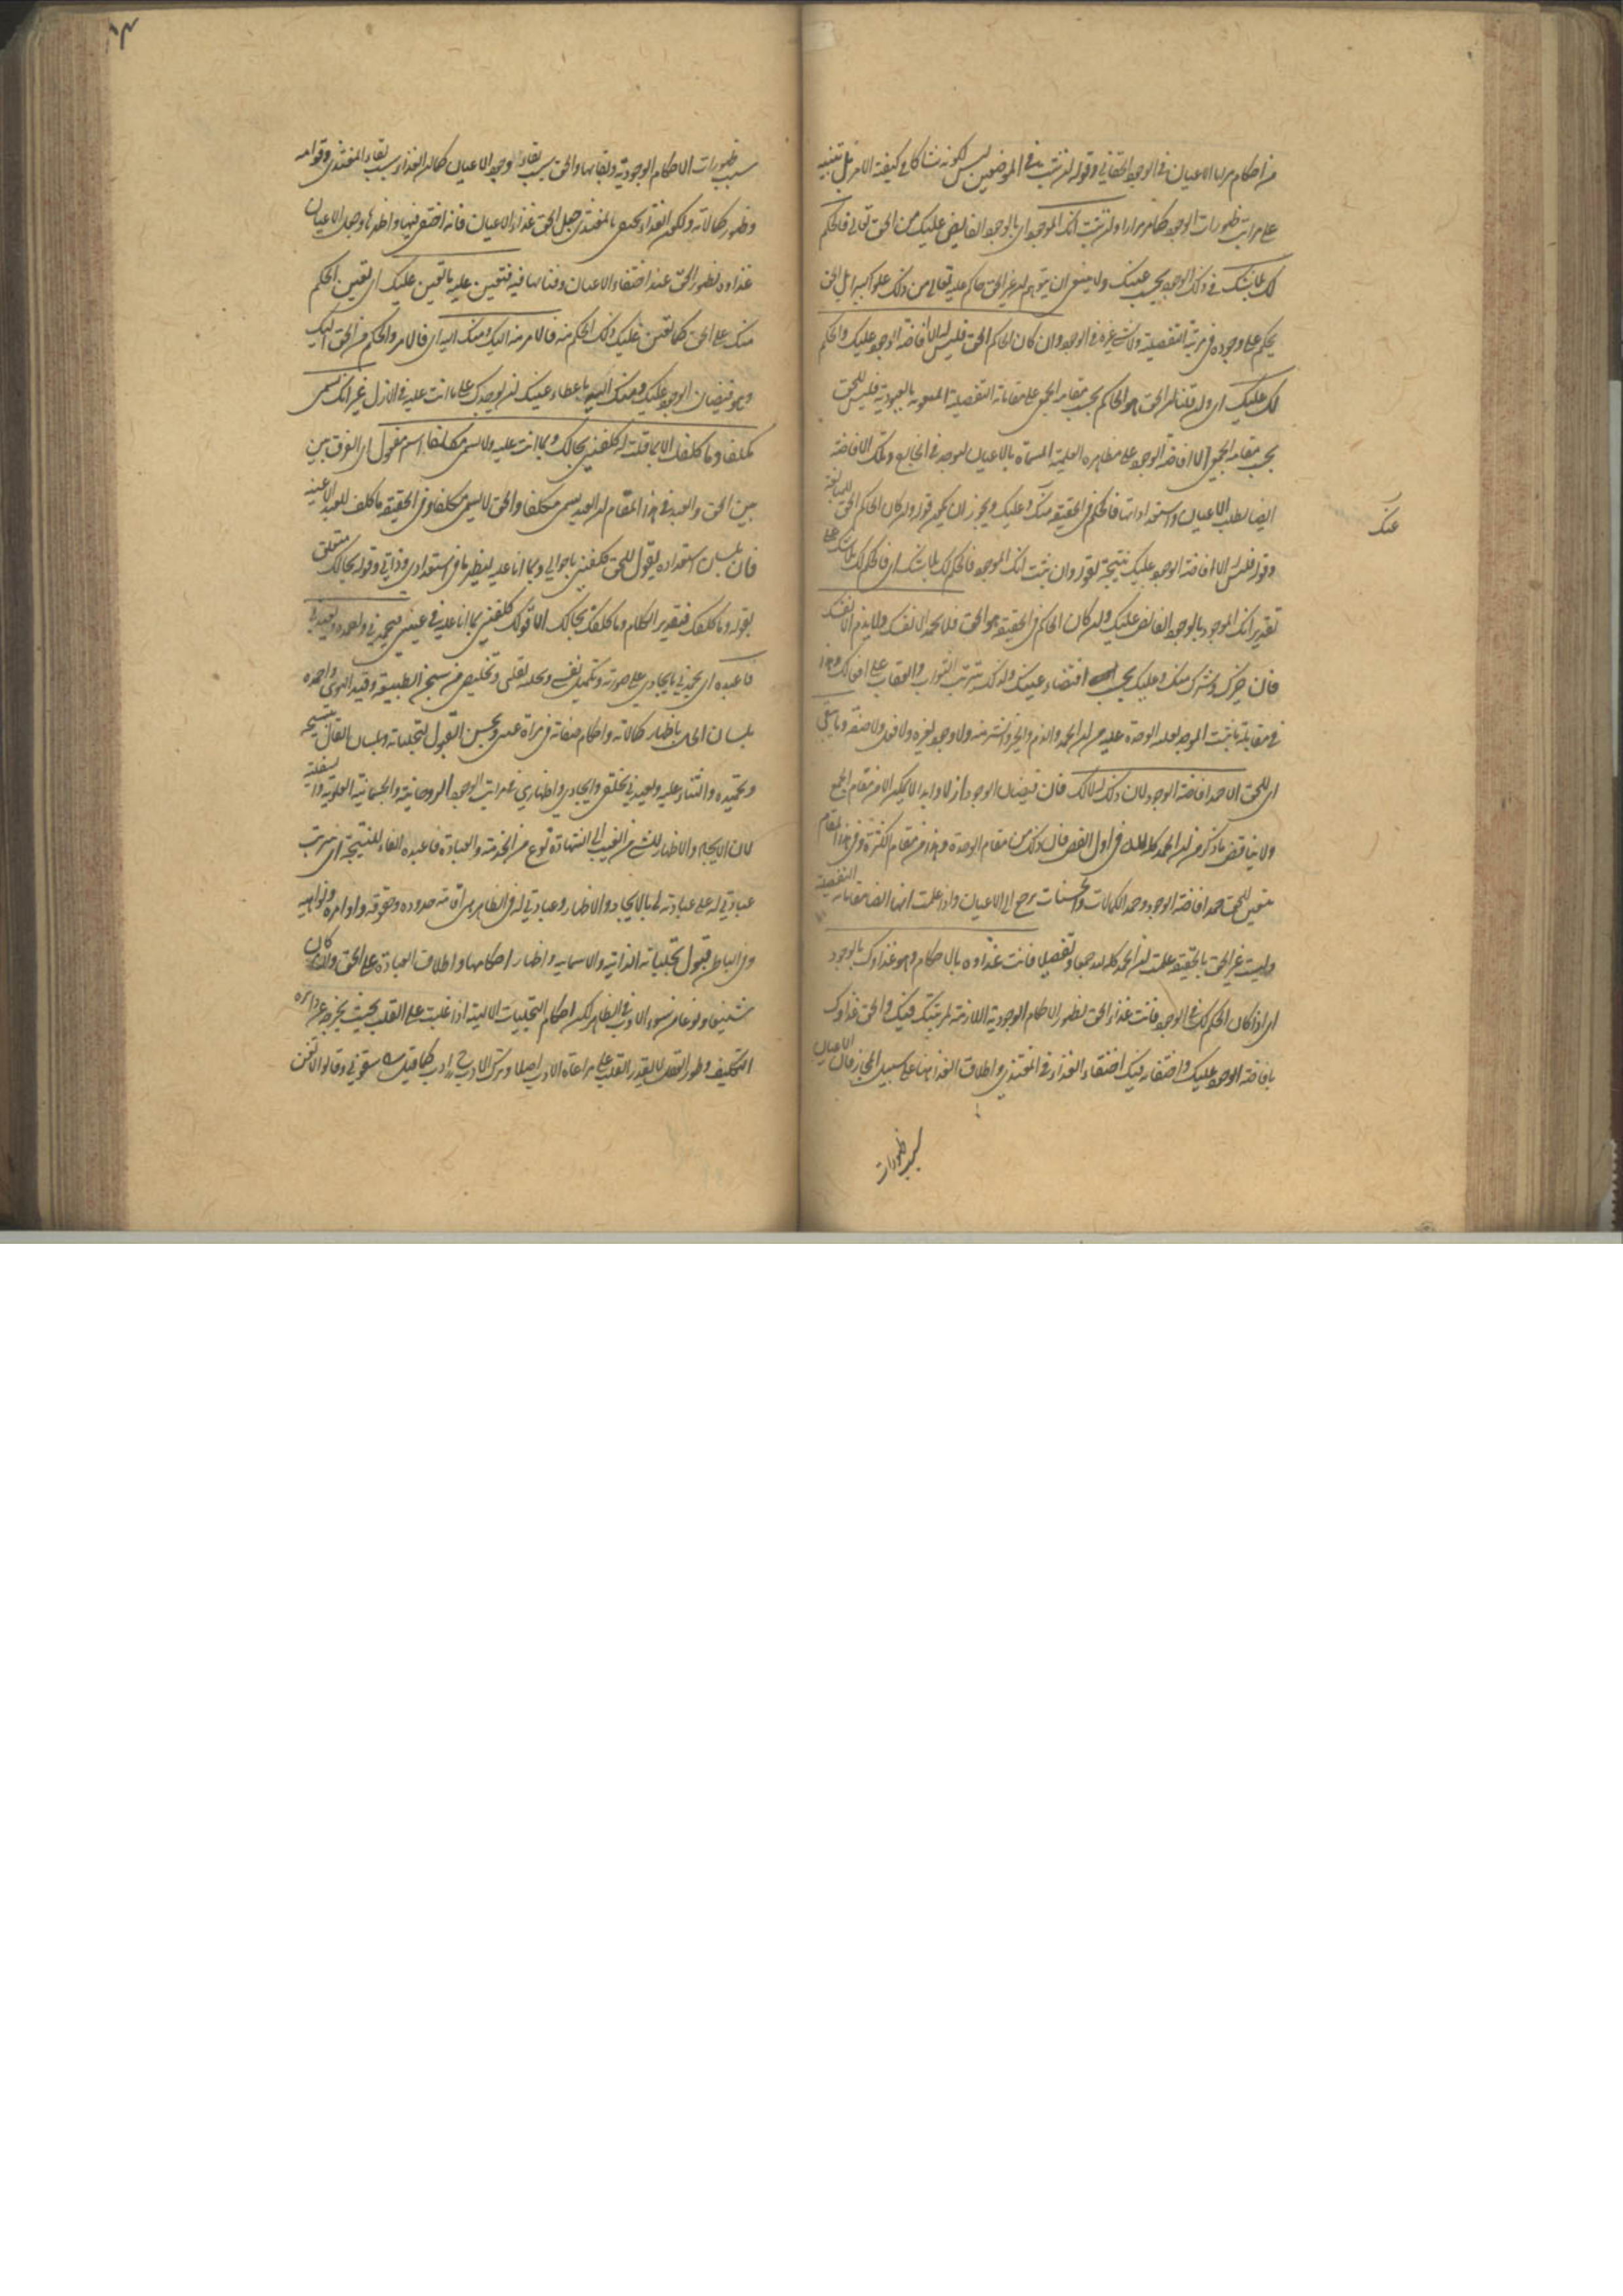 من احكام مرايا الاعيان في الوجود الحقاني وقوله ان ثبت في الموضعين ليس لكونه شاكا في كيفية الامر بل تنبيه
على مراتب ظهورات الوجود كما مر مرارا وان ثبت انك الموجود اي بالوجود الفايض عليك من الحق تعالى فالحكم
لك بلا شك في ذلك الوجود بحسب عينك ولا ينبغي ان يتوهم ان غير الحق حاكم عليه تعالى من ذلك علوا كبيرا بل الحق
يحكم على وجوده في مرتبة التفصيلية ولا شيء غيره في الوجود وان كان الحاكم الحق فليس له الا افاضة الوجود عليك والحكم
لك عليك اي ولو قلنا ان الحق هو الحاكم بحسب مقامه الجمعي على مقاماته التفصيلية المنعوتة بالعبودية فليس للحق
بحسب مقامه الجمعي الا افاضة الوجود على مظاهره العلمية المسماة بالاعيان لتوجد في الخارج وتلك الافاضة
ايضا بطلب الاعيان واستعداداتها فالحكم في الحقيقة منك وعليك ويجوز ان يكون قوله وان كان الحاكم الحق للمبالغة
عنك
وقوله فليس له الا افاضة الوجود عليك نتيجة لقوله وان ثبت انك الموجود فالحكم لك بلا شك اي فالحكم لك بلا شك على
تقدير انك الموجود بالوجود الفائض عليك وان كان الحاكم في الحقيقة هو الحق فلا تحمد الا نفسك ولا تذم الا نفسك
فان خيرك وشرك منك وعليك بحسب اقتضاء عينك ولذلك ترتب الثواب والعقاب على افعالك وهذا
في مقابلة ما يثبت الموحد لغلبة الوحدة عليه من ان الحمد والذم والخير والشر منه ولا وجود لغيره ولا فعل ولا صفة وما يبقى
اي للحق الا حمد افاضة الوجود لان ذلك له لا لك فان فيضان الوجود ازلا وابدا لا يمكن الا من مقام الجمع
ولا يناقض ما ذكر من ان الحمد كله لله في اول الفص فان ذلك من مقام الوحدة وهذا من مقام الكثرة وفي هذا المقام
يتعين للحق حمد افاضة الوجود وحمد الكمالات والحسنات يرجع الى الاعيان واذا علمت انها ايضا مقاماته التفصيلية
وليست غير الحق بالحقيقة علمت ان الحمد كله لله جمعا وتفصيلا فانت غذاؤه بالاحكام وهو غذاؤك بالوجود
اي اذا كان الحكم لك في الوجود فانت غذاء الحق لظهور الاحكام الوجودية اللازمة لمرتبتك فيك والحق غذاؤك
بافاضة الوجود عليك واختفائه فيك اختفاء الغذاء في المغتذي واطلاق الغذاء هنا على سبيل المجاز فان الاعيان
سبب ظهورات
١٣
سبب ظهورات الاحكام الوجودية وبقائها والحق سبب بقاء وجود الاعيان كما ان الغذاء سبب بقاء المغتذي وقوامه
وظهور كمالاته ولكون الغذاء يختفي بالمغتذي جعل الحق غذاء الاعيان فانه اختفى فيها واظهرها وجعل الاعيان
غذاءه لظهور الحق عند اختفاء الاعيان وفنائها فيه فتعين عليه ما تعين عليك اي تعين الحكم
منك على الحق كما تعين عليك ذلك الحكم منه فالامر منه اليك ومنك اليه اي فالامر والحكم من الحق اليك
وهو فيضان الوجود عليك ومنك اليه باعطاء عينك ان يوجدك على ما انت عليه في الازل غير انك تسمى
مكلفا وما كلفك الا بما قلت له كلفني بحالك وبما انت عليه ولا يسمى مكلفا اسم مفعول اي الفرق بين
بين الحق والعبد في هذا المقام ان العبد يسمى مكلفا والحق لا يسمى مكلفا وفي الحقيقة ما كلف للعبد الا عينه
فان بلسان استعداده يقول للحق كلفني باحوالي وبما انا عليه ليظهر ما في استعدادي وذاتي وقوله بحالك متعلق
بقوله وما كلفك فتقدير الكلام وما كلفك بحالك الا قولك كلفني بما انا عليه في عيني فيحمدني واحمده ويعبدني
فاعبده اي يحمدني بايجادي على صورته وتكميل نفسي وتجليه لقلبي وتخليصي من سجن الطبيعة وقيد الهوى واحمده
بلسان الحال باظهار كمالاته واحكام صفاته في مرآة عيني وبحسن القبول لتجلياته وبلسان القال بتسبيحه
وتحميده والثناء عليه ويعبدني بخلقي وايجادي واظهاري في مراتب الوجود الروحانية والجسمانية العلوية والسفلية
لان الايجاد والاظهار للشيء من الغيب الى الشهادة نوع من الخدمة والعبادة فاعبده الفاء للنتيجة اي يترتب
عبادتي له على عبادته لي بالايجاد والاظهار وعبادتي له في الظاهر هي اقامة حدوده وحقوقه واوامره ونواهيه
وفي الباطن قبول تجلياته الذاتية والاسمائية واظهار احكامها واطلاق العبادة على الحق وان كان
شنيعا ونوعا من سوء الادب في الظاهر لكن احكام التجليات الالهية اذا غلبت على القلب بحيث يخرجه عن دائرة
التكليف وطور العقل لا يقدر القلب على مراعاة الادب اصلا وترك الادب ح ادب كما قيل سقوني وقالوا لا تغن